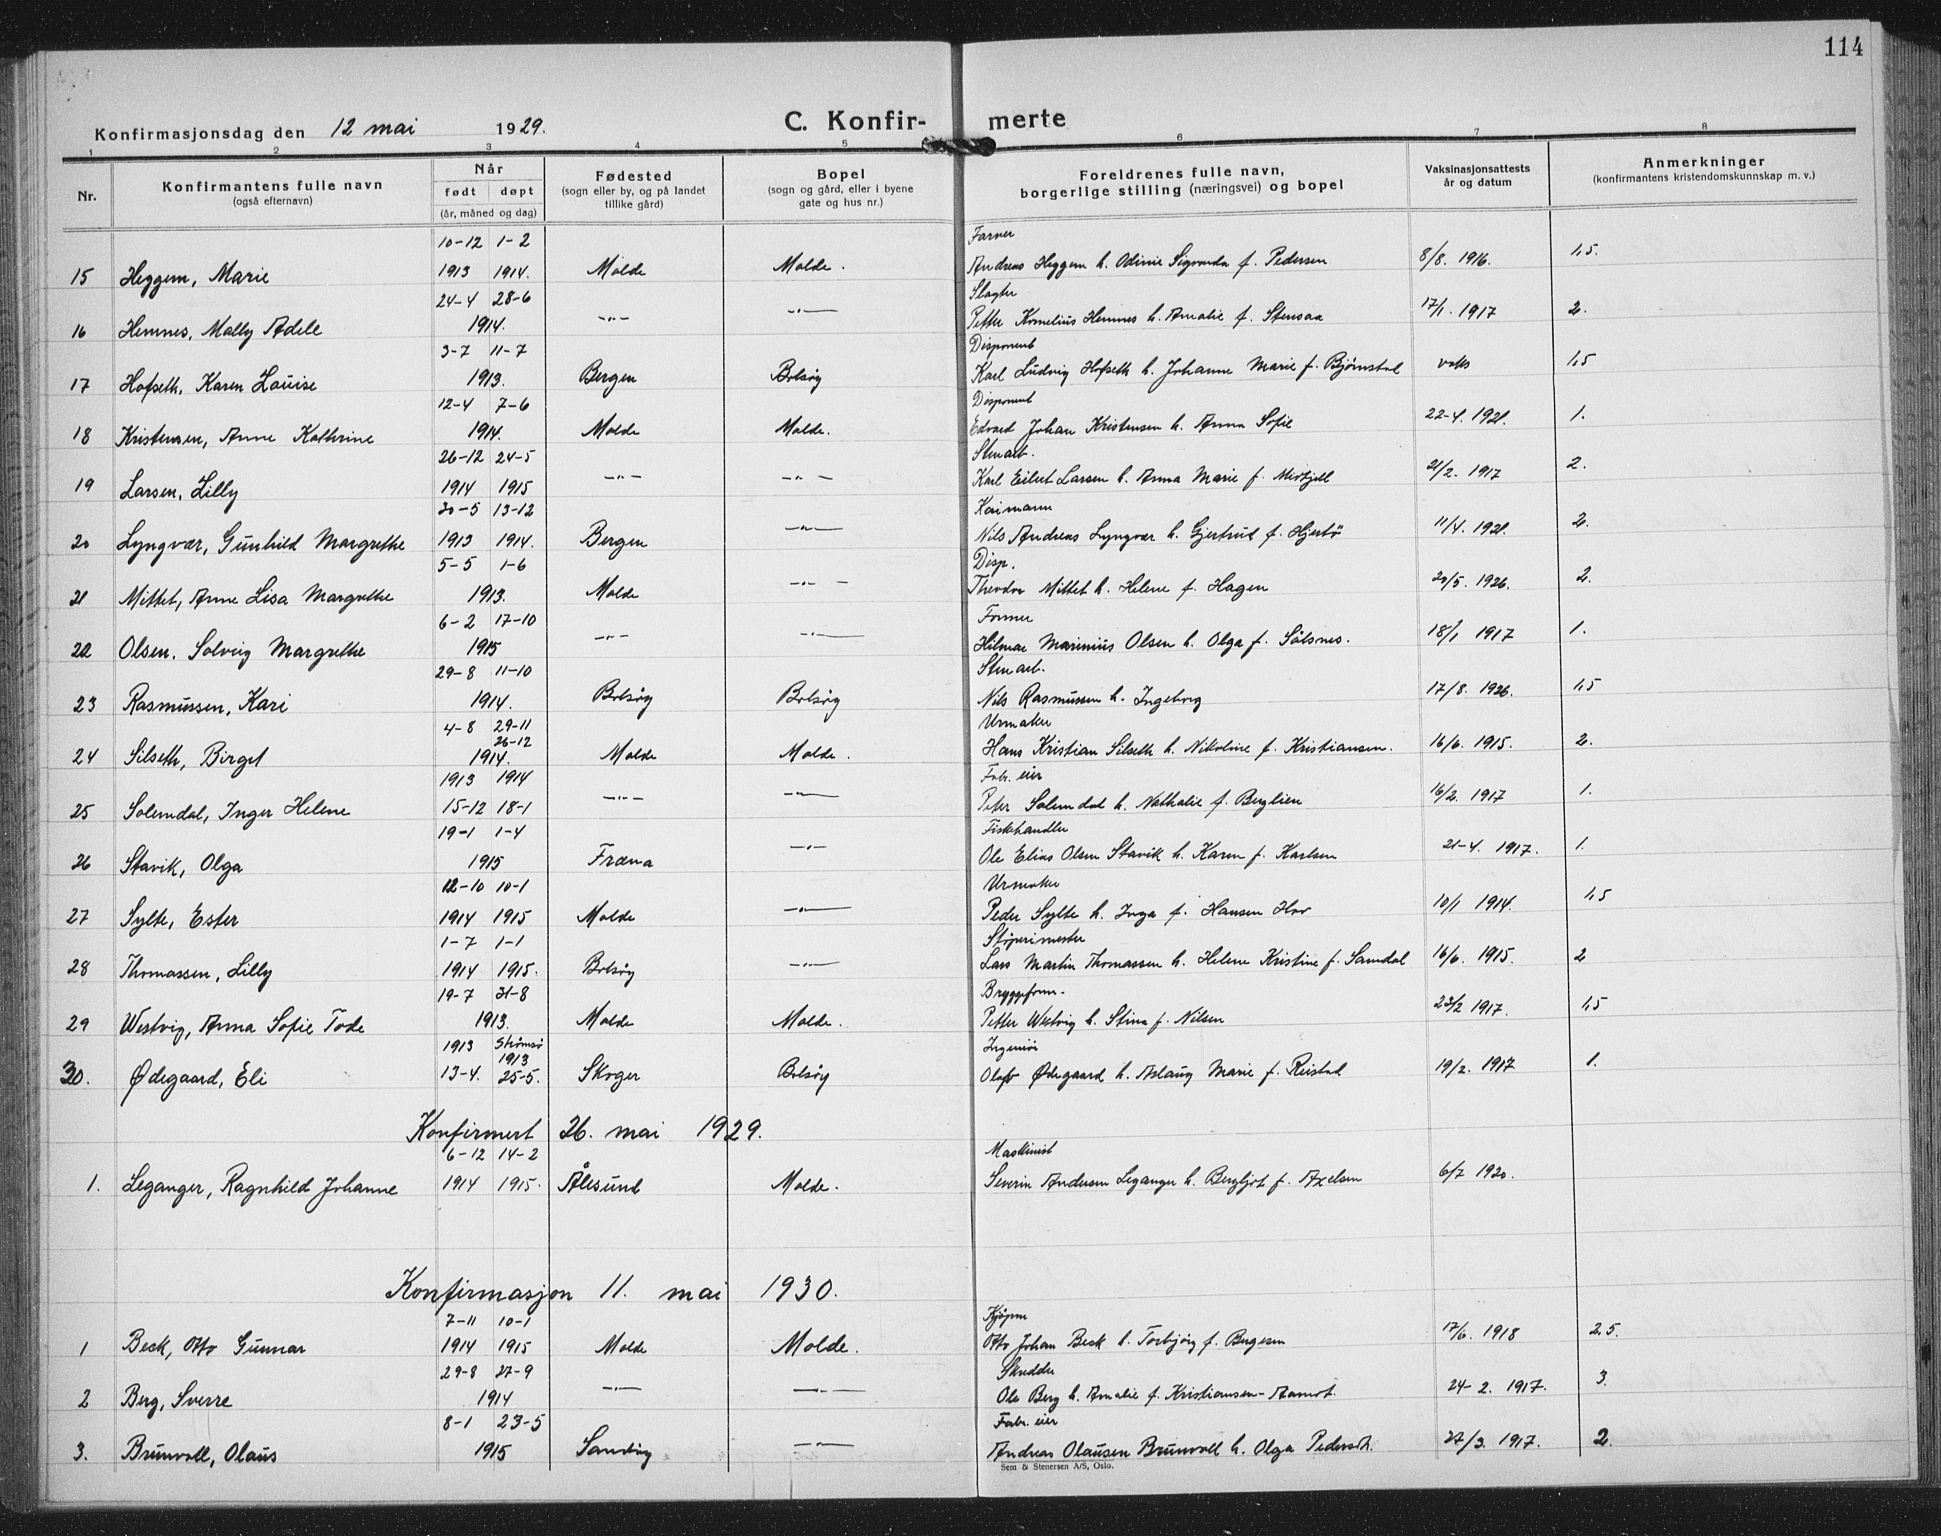 114
Konfirmasjonsdag den 12 mai 1929.
C. Konfir- merte
1 2 3 4 5 6 7 8
Nr. Konfirmantens fulle navn (også efternavn) Når født døpt (år, måned og dag) Fødested (sogn eller by, og på landet tillike gård) Bopel (sogn og gård, eller i byene gate og hus nr.) Foreldrenes fulle navn, borgerlige stilling (næringsvei) og bopel Vaksinasjonsattests år og datum Anmerkninger (konfirmantens kristendomskunnskap m. v.)
10-12 1-2 Farver
15 Heggem, Marie 1913 1914. Molde Molde. Andreas Heggem h. Odinie Sigvarda f. Pedersen 8/8. 1916. 1,5.
24-4 28-6 Slagter
16 Hemnes, Molly Adele 1914. -"- -"- Petter Kornelius Hemnes h. Amalie f. Stensaa 17/1. 1917 2.
3-7 11-7 Disponent
17 Hofseth, Karen Louise 1913. Bergen Bolsøy Karl Ludvig Hofseth h. Johanne Marie f. Bjørnstad vaks 1,5
12-4 7-6 Disponent
18 Kristensen, Anne Kathrine 1914. Molde Molde. Edvard Johan Kristensen h. Anna Sofie 22-4. 1921. 1.
26-12 24-5 Stenarb.
19 Larsen, Lilly 1914 1915 -"- -"- Karl Eilert Larsen h. Anna Marie f. 21/2. 1917 2.
30-5 13-12 Kaimann
20 Lyngvær, Gunhild Margrethe 1913 1914. Bergen -"- Nils Andreas Lyngvær h. Gjertrud f. Hjertø 11/4. 1921. 2.
5-5 1-6 Disp.
21 Mittet, Anne Lisa Margrethe 1913. Molde -"- Theodor Mittet h. Helene f. Hagen 20/5. 1926. 2.
6-2 17-10 Former
22 Olsen. Solveig Margrethe 1915 -"- -"- Hilmar Marinius Olsen h. Olga f. Sølsnes. 18/1 1917 1.
29-8 11-10 Stenarb.
23 Rasmussen, Kari 1914. Bolsøy Bolsøy Nils Rasmussen h. Ingeborg 17/8. 1926. 1,5
4-8 29-11 Urmaker
26-12
24 Silseth, Birgit 1914. Molde Molde. Hans Kristian Silseth h. Nikoline f. Kristiansen. 16/6. 1915. 2.
1913 1914 Fabr. eier
25 Solemdal, Inger Helene 15-12 18-1 -"- -"- Peter Solemdal h. Nathalie f. Berglien 16/2. 1917 1.
19-1 1-4 Fiskehandler
26 Stavik, Olga 1915 Fræna -"- Ole Elias Olsen Stavik h. Karen f. Karlsen 21-4. 1917. 1.
12-10 10-1 Urmaker
27 Sylte, Ester 1914 1915 Molde -"- Peder Sylte h. Inga f. Hansen Hov 10/1 1914. 1,5
1-7 1-1 Støperimester
28 Thomassen, Lilly 1914 1915. Bolsøy -"- Lars Martin Thomassen h. Helene Kristine f. Samdal 16/6. 1915. 2
19-7 31-8 Bryggeform.
29 Westvig, Anna Sofie Tode 1913. Molde Molde. Petter Westvig h. Stina f. Nilsen 23/2 1917. 1,5
1913 Strømsø Ingeniør
1913
30. Ødegaard, Eli 13-4. 25-5. Skoger Bolsøy Olaf Ødegaard h. Aslaug Marie f. Reistad 19/2. 1917 1.
Konfirmert 26. mai 1929.
6-12 14-2 Maskinist
1. Leganger, Ragnhild Johanne 1914 1915. Ålesund Molde. Severin Andersen Leganger h. Bergljot f. Axelsen 6/7 1920.
Konfirmasjon 11. mai 1930.
7-11 10-1 Kjøpm
1 Beck, Otto Gunnar 1914 1915 Molde Molde. Otto Johan Beck h. Torbjørg f. Bergesen 17/6. 1918 2,5.
29-8 27-9 Skredder
2 Berg, Sverre 1914 -"- -"- Ole Berg h. Amalie f. Kristiansen- Aamot. 24-2. 1917. 3.
8-1 23-5 Fabr. eier
3. Brunvoll, Olaus 1915 Sandøy -"- Andreas Olausen Brunvoll h. Olga Pedersdt. 27/3. 1917. 2.
Sem & Stenersen A/S, Oslo.